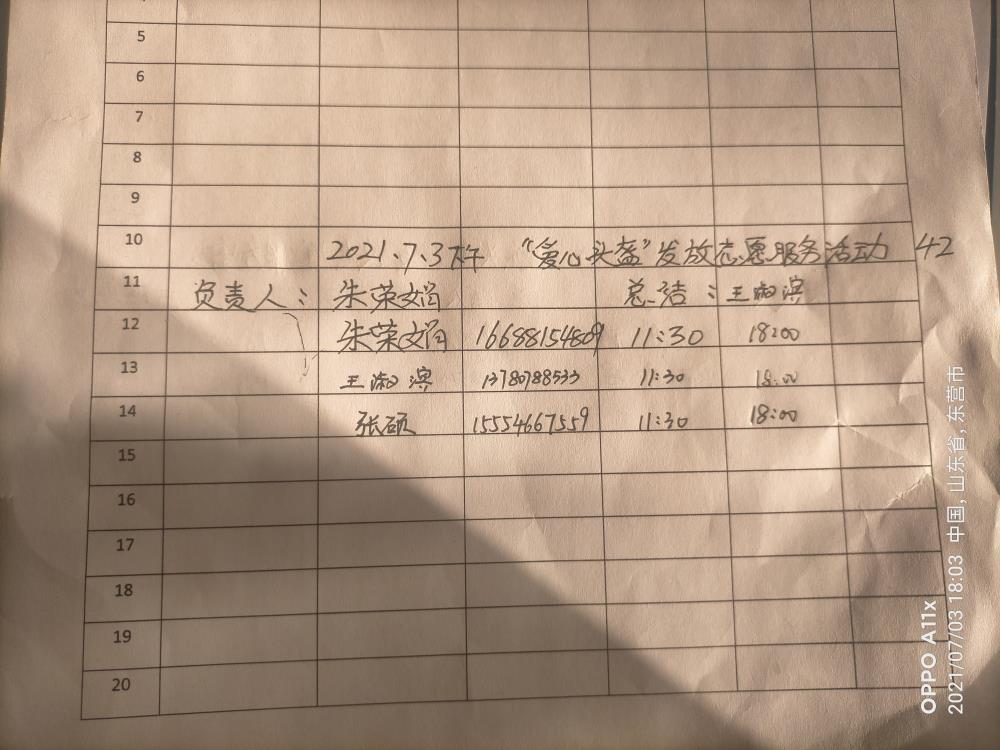 5
6
7
8
9
10 2021.7.3下午 “爱心头盔”发放志愿服务活动 42
11 负责人: 朱荣娟 总结: 王淑滨
12 朱荣娟 16688154809 11:30 18:00
13 王淑滨 13780788533 11:30 18:00
14 张硕 15554667559 11:30 18:00
15
16
17
18
19
20
OPPO A11x
2021/07/03 18:03 中国, 山东省, 东营市